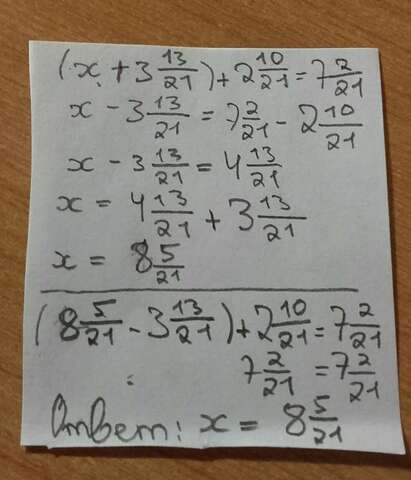 (x + 3 13/21) + 2 10/21 = 7 2/21
x - 3 13/21 = 7 2/21 - 2 10/21
x - 3 13/21 = 4 13/21
x = 4 13/21 + 3 13/21
x = 8 5/21
(8 5/21 - 3 13/21) + 2 10/21 = 7 2/21
7 2/21 = 7 2/21
Ответ: x = 8 5/21